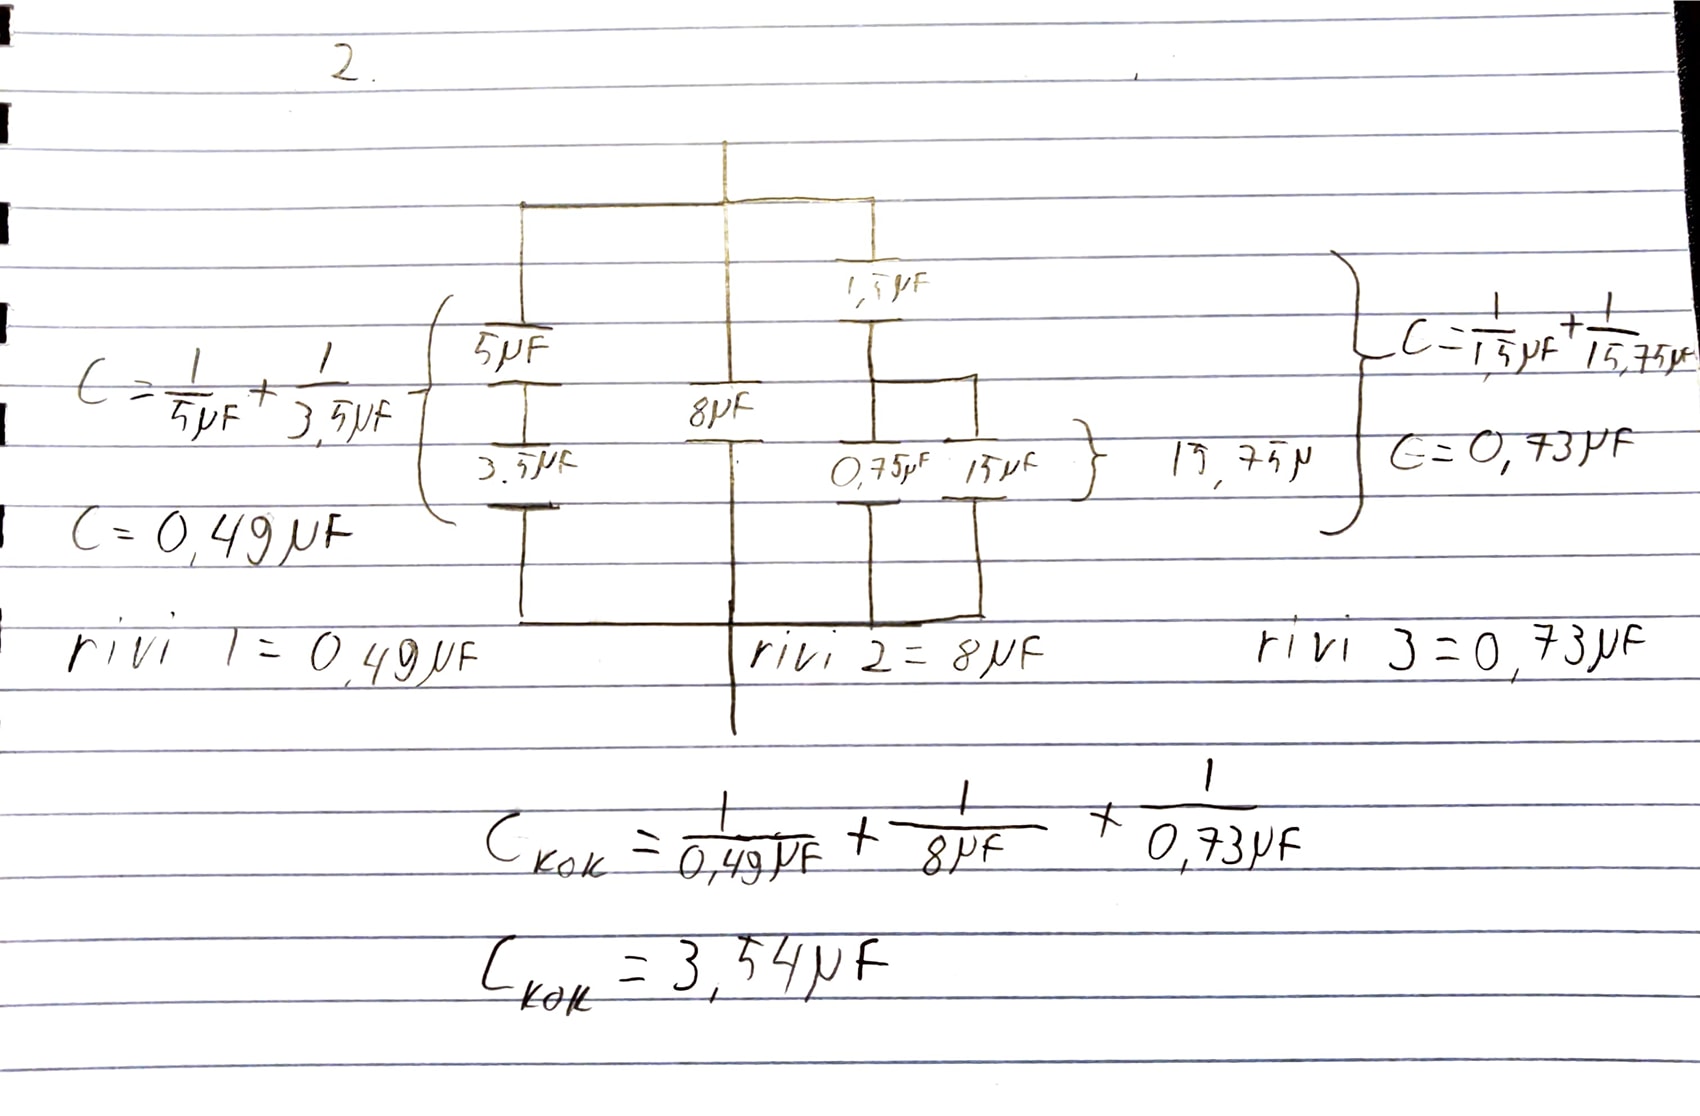 2.
1,5μF
5μF
C = 1/5μF + 1/3,5μF
8μF
C = 1/1,5μF + 1/15,75μF
3.5μF
0,75μF 15μF } 15,75μ
C = 0,73μF
C = 0,49μF
rivi 1 = 0,49μF rivi 2 = 8μF rivi 3 = 0,73μF
Cкок = 1/0,49μF + 1/8μF + 1/0,73μF
Cкок = 3,54μF